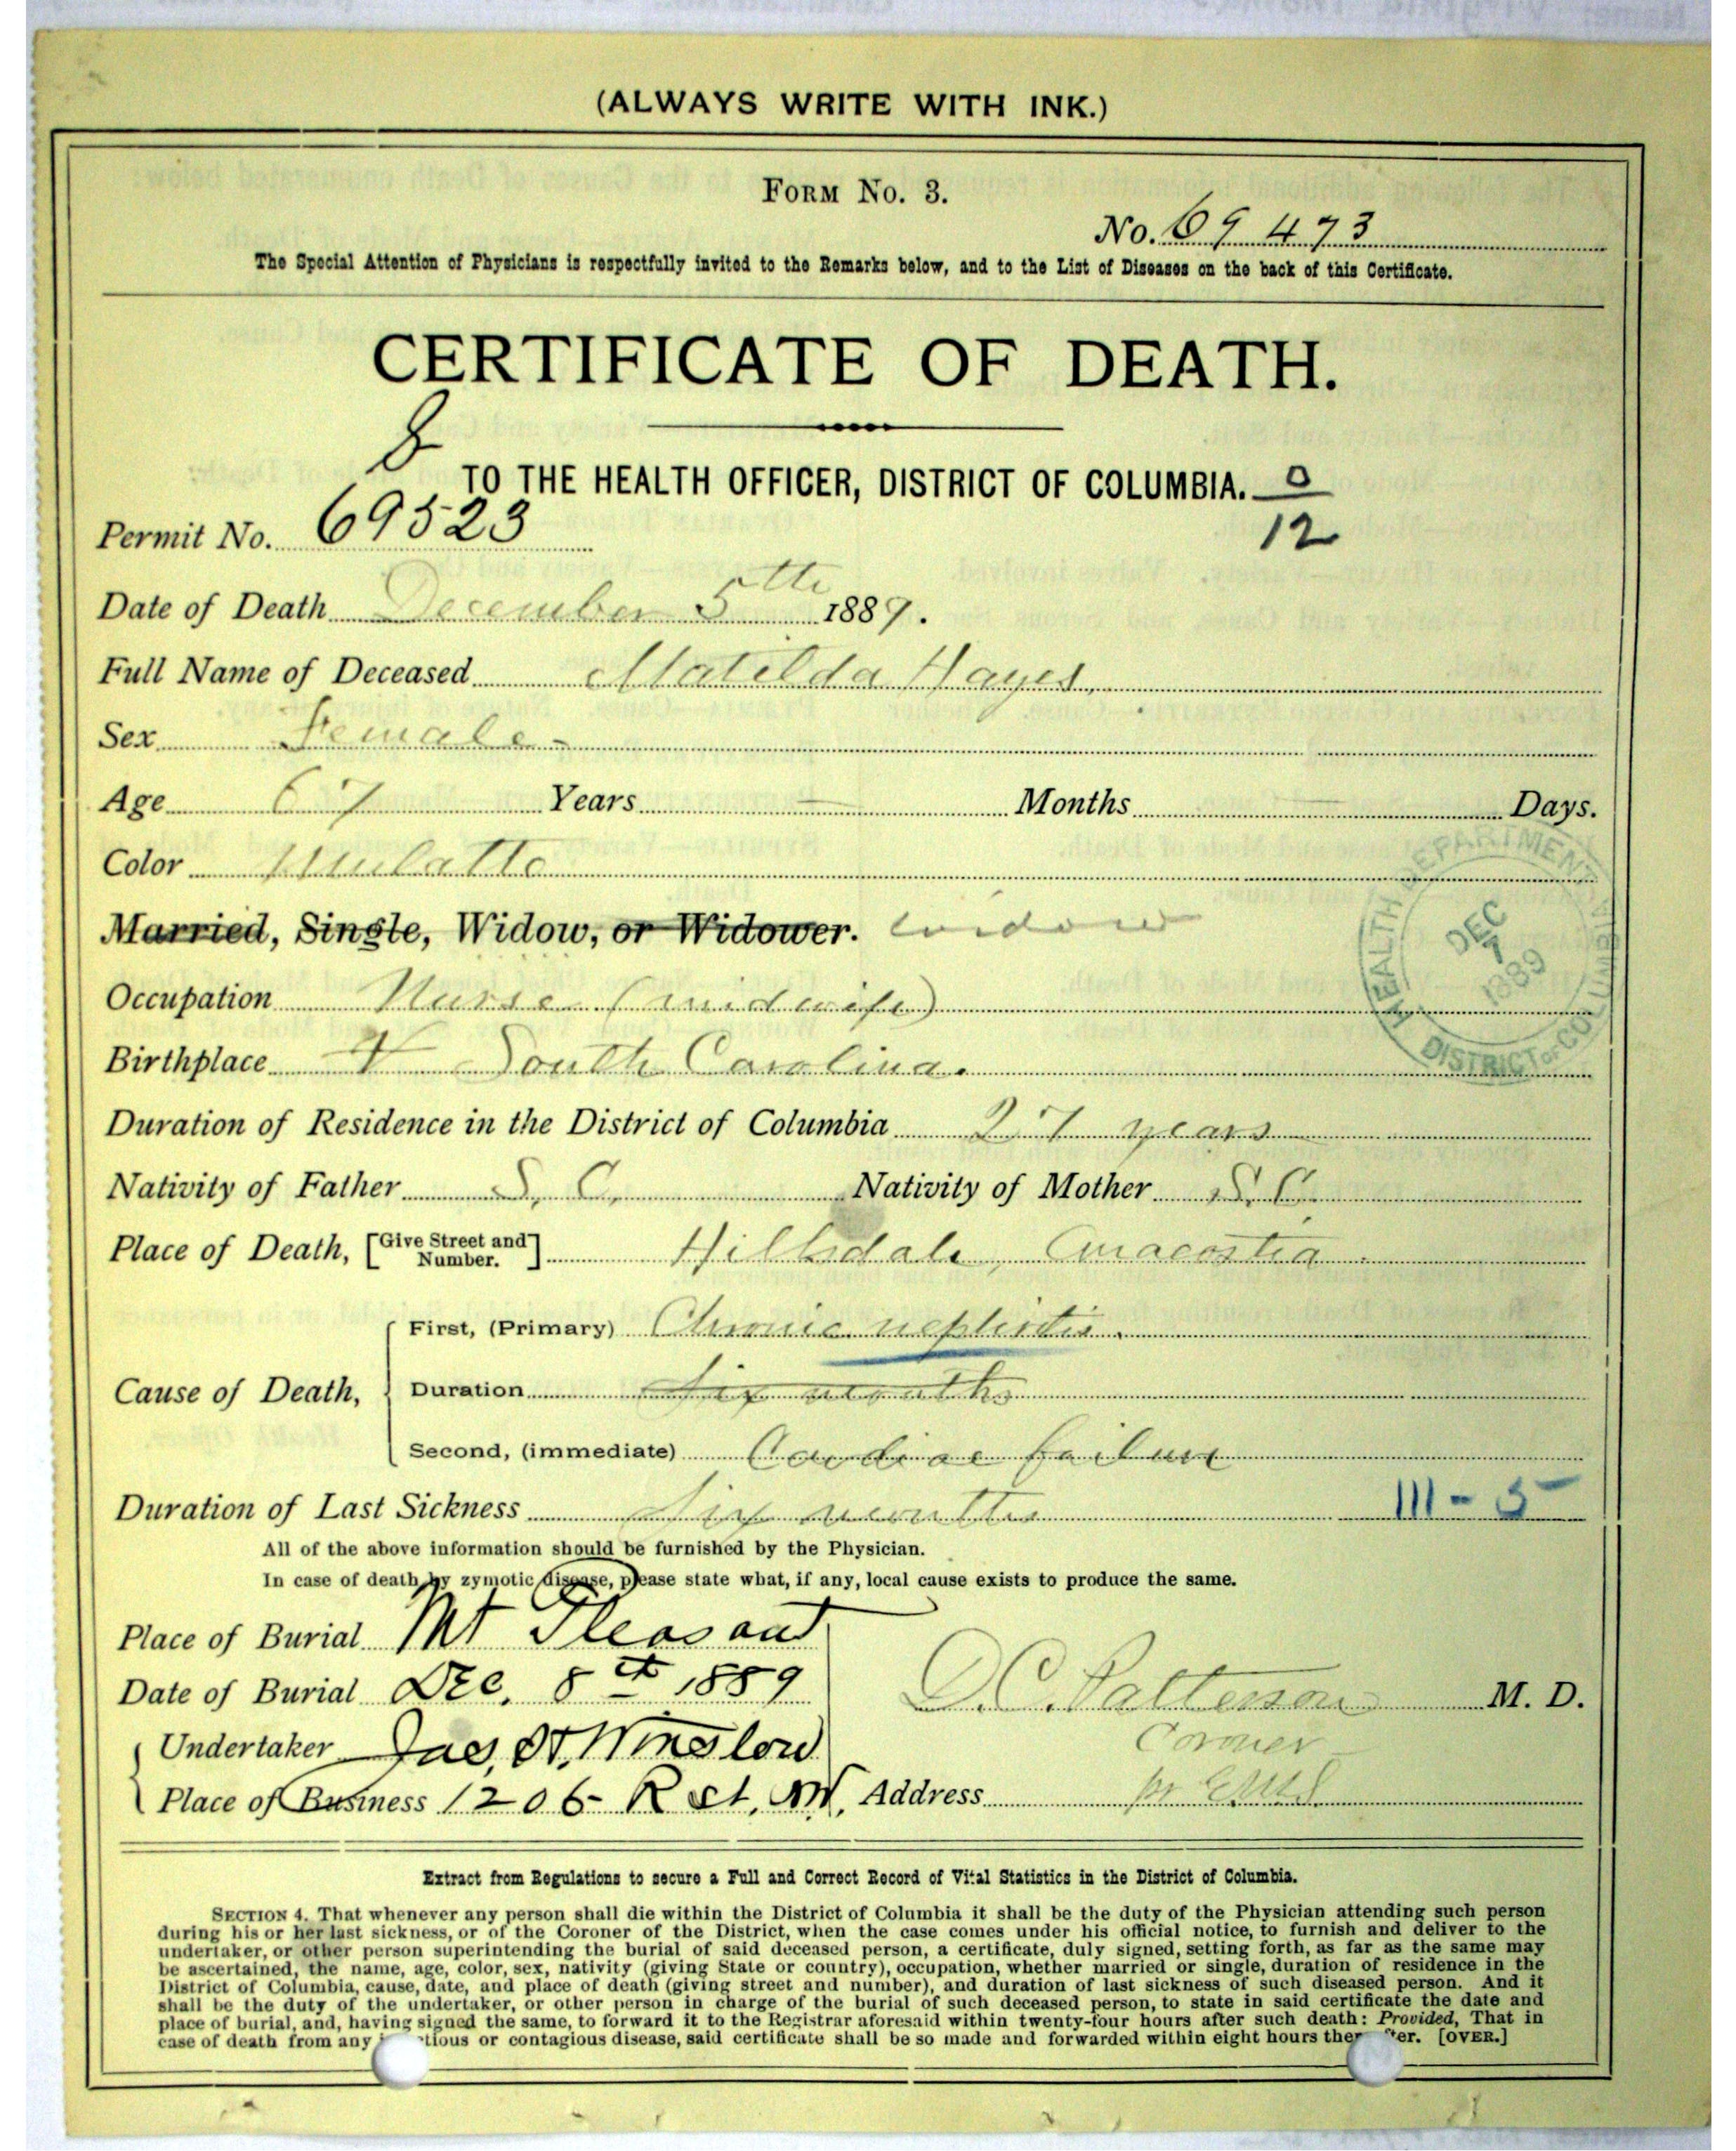 (ALWAYS WRITE WITH INK.)
FORM No. 3.
No. 69473
The Special Attention of Physicians is respectfully invited to the Remarks below, and to the List of Diseases on the back of this Certificate.
CERTIFICATE OF DEATH.
TO THE HEALTH OFFICER, DISTRICT OF COLUMBIA.
12
Permit No. 69523
Date of Death December 5th 1889.
Full Name of Deceased Matilda Hayes
Sex Female
Age 67 Years Months Days.
Color Mulatto
Married, Single, Widow, or Widower. widow
Occupation Nurse (midwife)
Birthplace South Carolina.
Duration of Residence in the District of Columbia 27 years
Nativity of Father S. C. Nativity of Mother S. C.
Place of Death, [Give Street and Number.] Hillsdale, Anacostia
Cause of Death, First, (Primary) Chronic nephritis.
Duration Six months
Second, (immediate) Cardiac failure
Duration of Last Sickness Six months III - 5
All of the above information should be furnished by the Physician.
In case of death by zymotic disease, please state what, if any, local cause exists to produce the same.
Place of Burial Mt Pleasant
Date of Burial Dec. 8th 1889 D C Patterson M. D.
Undertaker Jas. H. Winslow Coroner
Place of Business 1206 - R St. NW, Address
Extract from Regulations to secure a Full and Correct Record of Vital Statistics in the District of Columbia.
SECTION 4. That whenever any person shall die within the District of Columbia it shall be the duty of the Physician attending such person
during his or her last sickness, or of the Coroner of the District, when the case comes under his official notice, to furnish and deliver to the
undertaker, or other person superintending the burial of said deceased person, a certificate, duly signed, setting forth, as far as the same may
be ascertained, the name, age, color, sex, nativity (giving State or country), occupation, whether married or single, duration of residence in the
District of Columbia, cause, date, and place of death (giving street and number), and duration of last sickness of such diseased person. And it
shall be the duty of the undertaker, or other person in charge of the burial of such deceased person, to state in said certificate the date and
place of burial, and, having signed the same, to forward it to the Registrar aforesaid within twenty-four hours after such death: Provided, That in
case of death from any tious or contagious disease, said certificate shall be so made and forwarded within eight hours ther er. [OVER.]
HEALTH DEPARTMENT
DEC
7
1889
DISTRICT of COLUMBIA